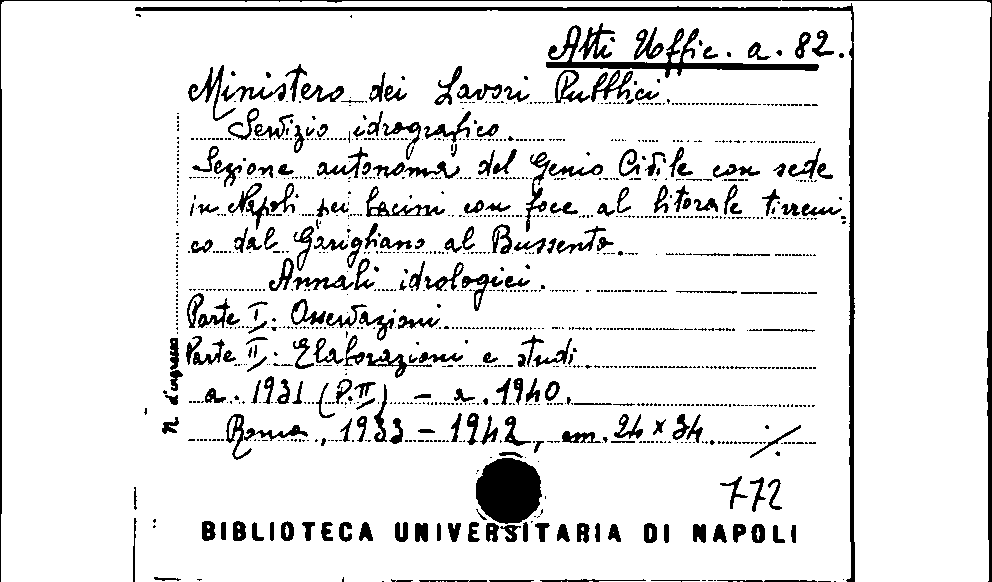 Atti Uffic. a. 82.
Ministero dei Lavori Pubblici.
Servizio idrografico.
Sezione autonoma del Genio Civile con sede
in Napoli pei bacini con foce al litorale tirreni-
co dal Garigliano al Bussento.
Annali idrologici.
Parte I: Osservazioni.
Parte II: Elaborazioni e studi.
a. 1931 (P. II) - a. 1940.
Roma, 1933 - 1942, cm. 24 x 34. ./.
N. d'ingresso
772
BIBLIOTECA UNIVERSITARIA DI NAPOLI